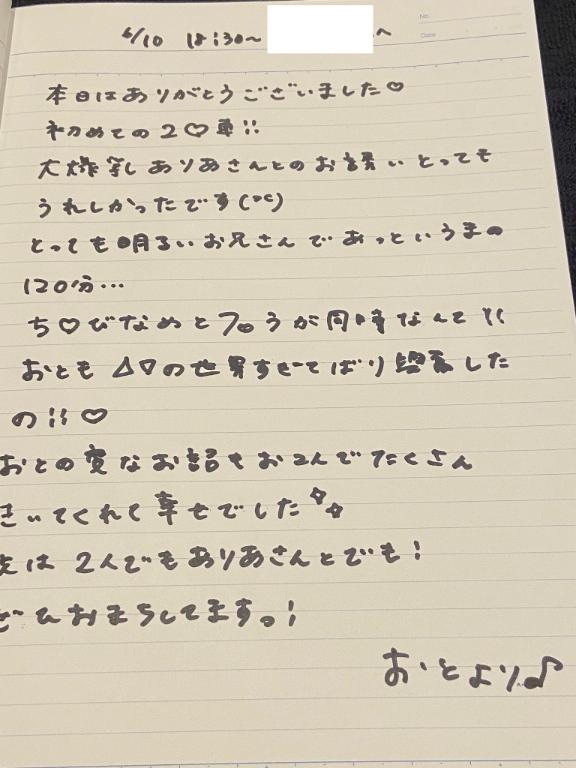 6/10 18:30〜 へ
No.
Date
本日はありがとうございました♡
初めての2♡車!!
大爆乳ありあさんとのお誘いとっても
うれしかったです(°°)
とっても明るいお兄さんであっというまの
120分…
ち♡びなめとフ○うが同時なんて!!
おとも △▽の世界すぎてばり しした
の!!♡
おとの変なお話もお2人でたくさん
きいてくれて幸せでした
次は2人でもありあさんとでも!
ぜひおまちしてますっ!
おとより♪